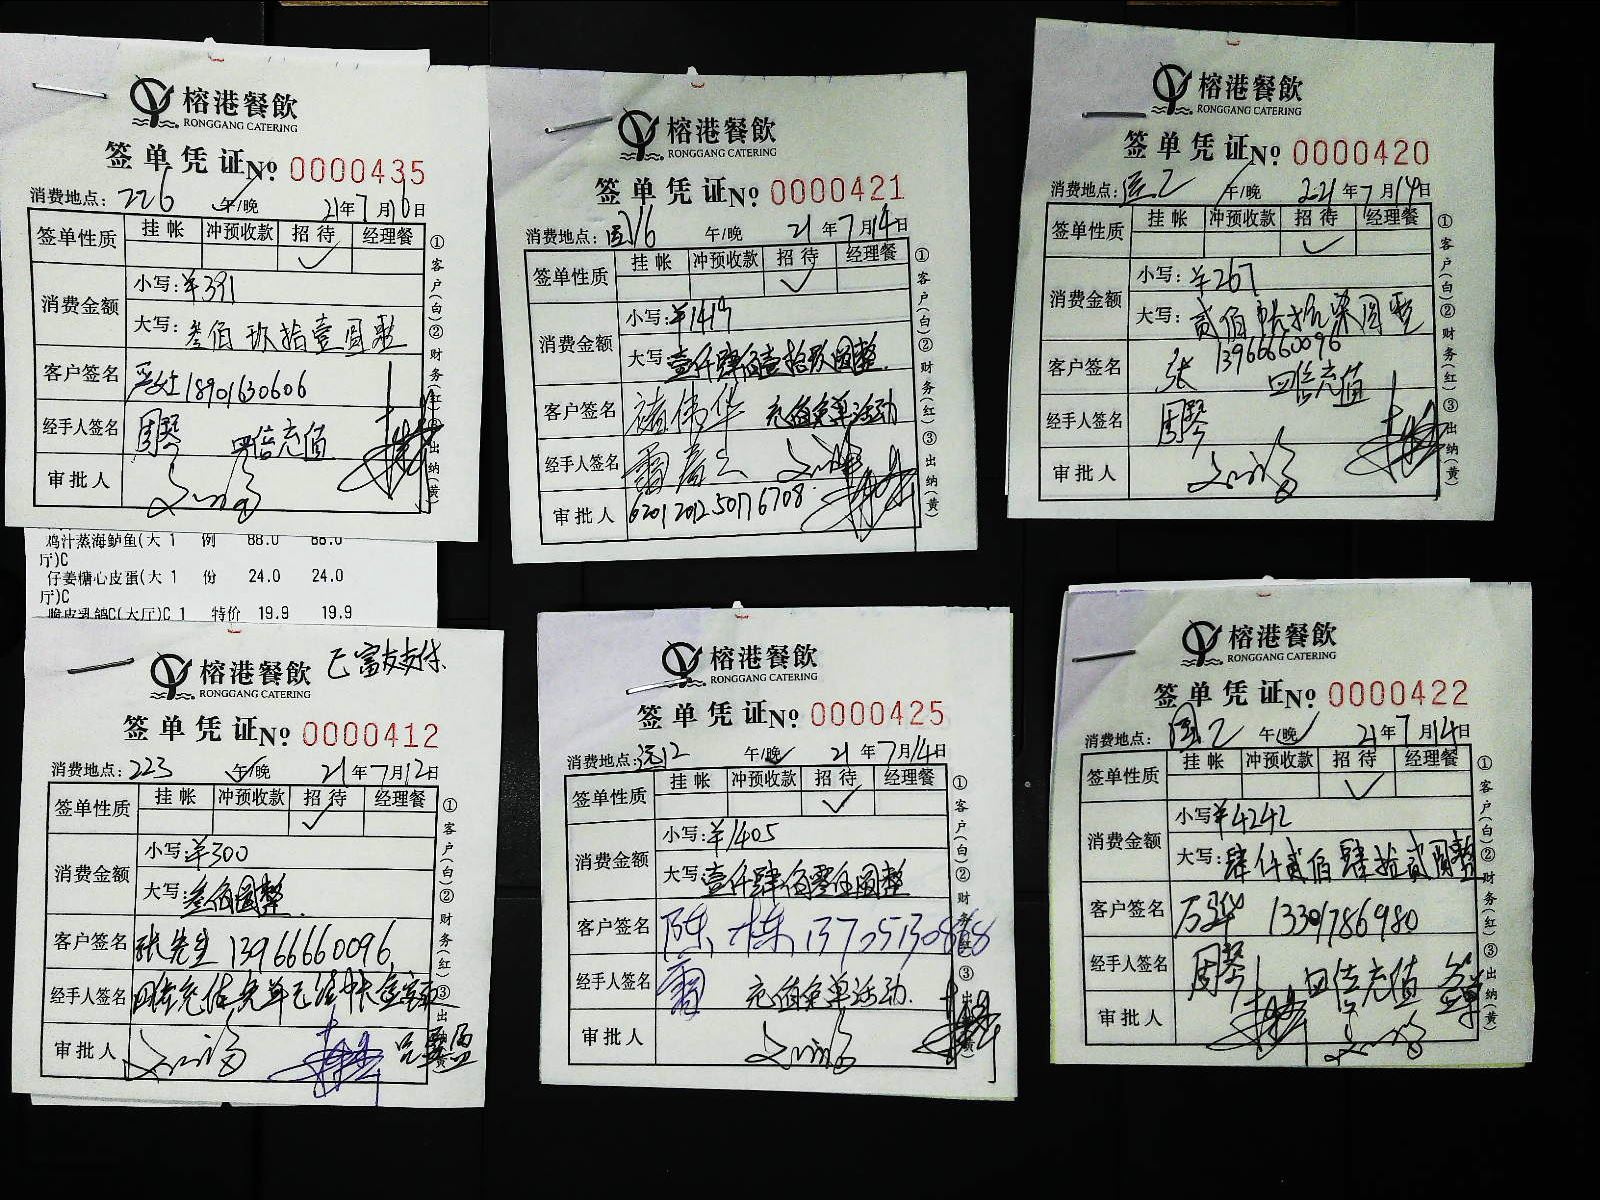 榕港餐飲
RONGGANG CATERING
签单凭证 No 0000435
消费地点: 226 午/晚 21年7月16日
签单性质 挂帐 冲预收款 招待 经理餐
消费金额 小写:¥391
大写: 叁佰玖拾壹圆整
客户签名 18901630606
经手人签名 周琴 四倍充值
审批人
①客户(白)②财务(红)③出纳(黄)
鸡汁蒸海鲈鱼(大 1 例 88.0 88.0
厅)C
仔姜糖心皮蛋(大 1 份 24.0 24.0
厅)C
脆皮乳鸽C(大厅)C 1 特价 19.9 19.9
榕港餐飲
RONGGANG CATERING
签单凭证 No 0000421
消费地点: 午/晚 21年7月14日
签单性质 挂帐 冲预收款 招待 经理餐
消费金额 小写:¥1419
大写: 壹仟肆佰壹拾玖圆整
客户签名 褚伟华 充值免单活动
经手人签名
审批人 6201201250176708
①客户(白)②财务(红)③出纳(黄)
榕港餐飲
RONGGANG CATERING
签单凭证 No 0000420
消费地点: 午/晚 221年7月14日
签单性质 挂帐 冲预收款 招待 经理餐
消费金额 小写:¥267
大写: 贰佰陆拾柒圆整
客户签名 张 13966660096
四倍充值
经手人签名 周琴
审批人
①客户(白)②财务(红)③出纳(黄)
榕港餐飲
RONGGANG CATERING
签单凭证 No 0000412
消费地点: 223 午/晚 21年7月12日
签单性质 挂帐 冲预收款 招待 经理餐
消费金额 小写:¥300
大写: 叁佰圆整
客户签名 张先生 13966660096
经手人签名 四倍充值免单
审批人
①客户(白)②财务(红)③出纳(黄)
榕港餐飲
RONGGANG CATERING
签单凭证 No 0000425
消费地点: 午/晚 21年7月14日
签单性质 挂帐 冲预收款 招待 经理餐
消费金额 小写:¥1405
大写: 壹仟肆佰零伍圆整
客户签名 陈栋 13705130868
经手人签名 充值免单活动
审批人
①客户(白)②财务(红)③出纳(黄)
榕港餐飲
RONGGANG CATERING
签单凭证 No 0000422
消费地点: 午/晚 21年7月14日
签单性质 挂帐 冲预收款 招待 经理餐
消费金额 小写:¥4242
大写: 肆仟贰佰肆拾贰圆整
客户签名 万华 13301786980
经手人签名 周琴 四倍充值 签单
审批人
①客户(白)②财务(红)③出纳(黄)